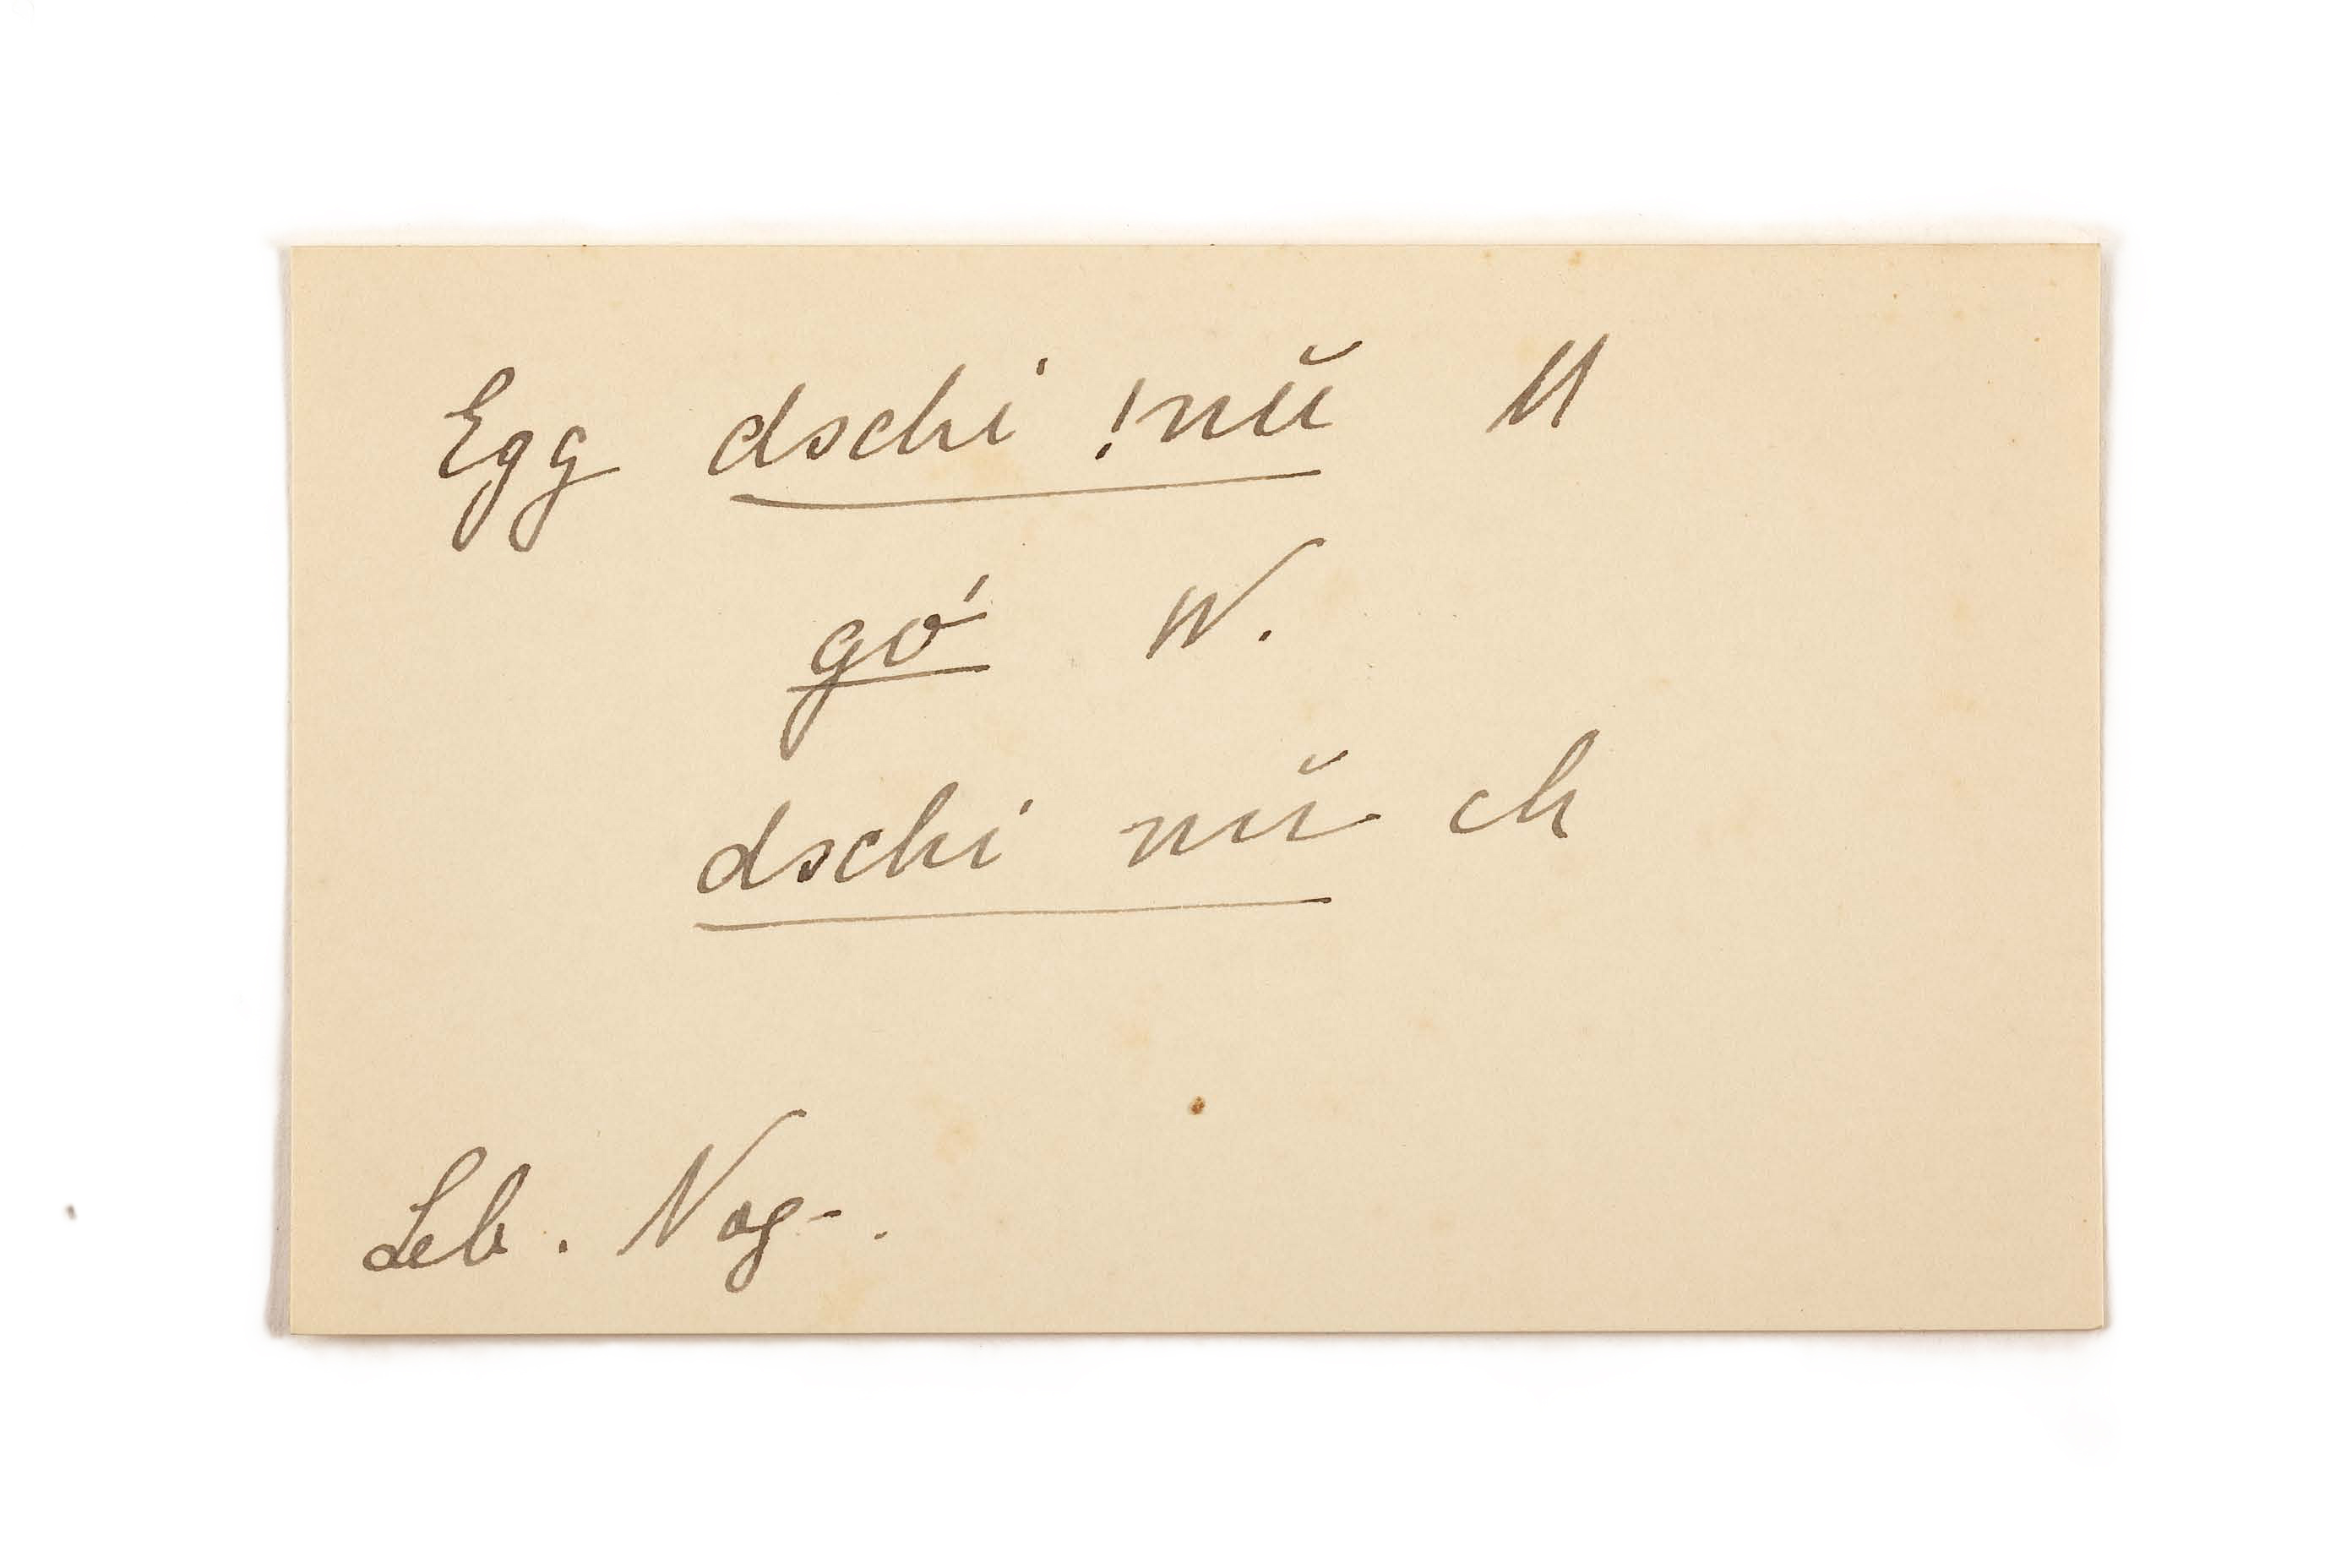 Egg dschi !nŭ M
gó W.
dschi nŭ ch
Leb. Nog-.